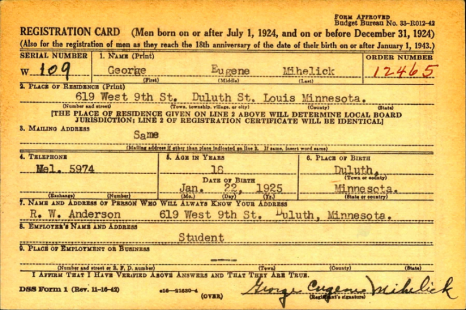 FORM APPROVED
Budget Bureau No. 33-R012-42
REGISTRATION CARD (Men born on or after July 1, 1924, and on or before December 31, 1924)
(Also for the registration of men as they reach the 18th anniversary of the date of their birth on or after January 1, 1943.)
SERIAL NUMBER 1. NAME (Print) ORDER NUMBER
W 109 George Eugene Mihelick 12465
(First) (Middle) (Last)
2. PLACE OF RESIDENCE (Print)
619 West 9th St. Duluth St. Louis Minnesota.
(Number and street) (Town, township, village, or city) (County) (State)
[THE PLACE OF RESIDENCE GIVEN ON LINE 2 ABOVE WILL DETERMINE LOCAL BOARD
JURISDICTION; LINE 2 OF REGISTRATION CERTIFICATE WILL BE IDENTICAL]
3. MAILING ADDRESS
Same
[Mailing address if other than place indicated on line 2. If same, insert word same]
4. TELEPHONE 5. AGE IN YEARS 6. PLACE OF BIRTH
Mel. 5974 18 Duluth,
DATE OF BIRTH (Town or county)
Jan. 22, 1925 Minnesota.
(Exchange) (Number) (Mo.) (Day) (Yr.) (State or country)
7. NAME AND ADDRESS OF PERSON WHO WILL ALWAYS KNOW YOUR ADDRESS
R. W. Anderson 619 West 9th St. Duluth, Minnesota.
8. EMPLOYER'S NAME AND ADDRESS
Student
9. PLACE OF EMPLOYMENT OR BUSINESS
(Number and street or R. F. D. number) (Town) (County) (State)
I AFFIRM THAT I HAVE VERIFIED ABOVE ANSWERS AND THAT THEY ARE TRUE.
DSS Form 1 (Rev. 11-16-42) (OVER) George Eugene Mihelick
(Registrant's signature)